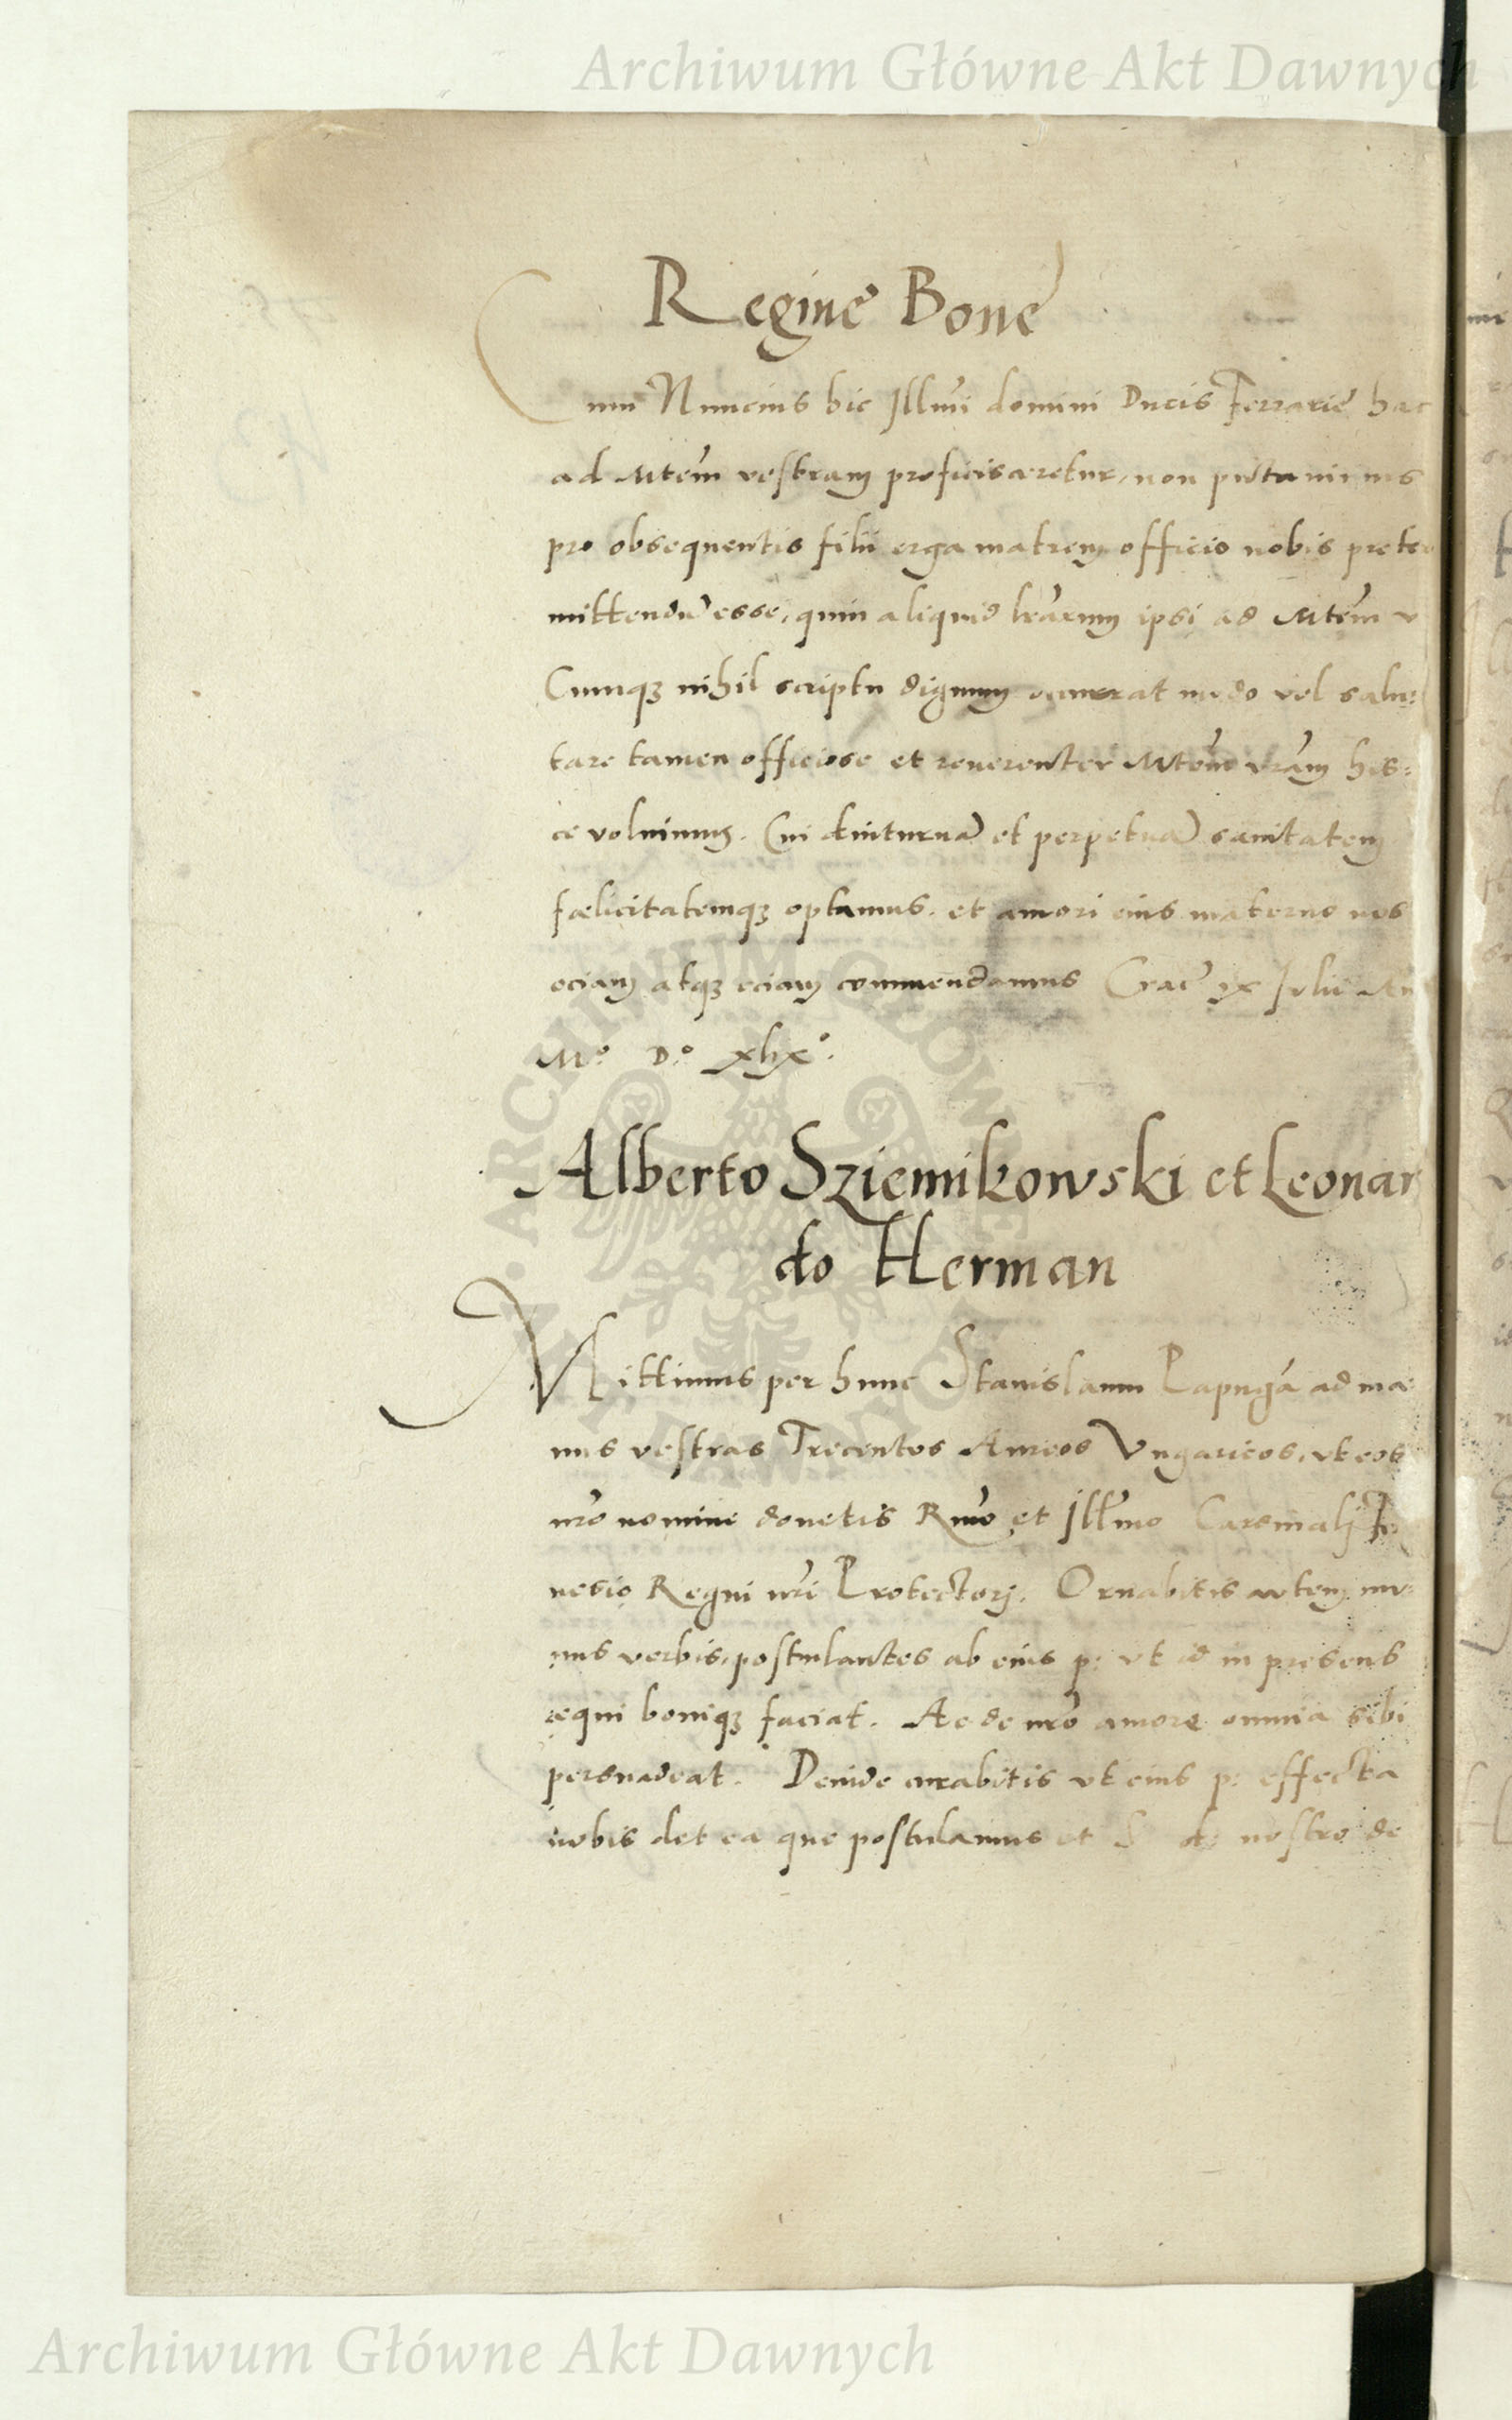 Archiwum Główne Akt Dawnych
Regine Bone
Cum Nuncius hic Illmi domini Ducis Ferrarie hac
ad Mtem vestram proficisceretur, non putauimus
pro obsequentis filii erga matrem officio nobis preter
mittendū esse, quin aliquid lrarum ipsi ad Mtem v
Cumqꝫ nihil scriptu dignum modo vel salu:
tare tamen officiose et reuerenter Mtem vram his:
ce voluimus. Cui diuturnā et perpetuā sanitatem
fælicitatemqꝫ optamus. et amori eius materno nos
eciam atqꝫ eciam commendamus Crac ix Julii An
Mº. Dº. xlixº.
Alberto Sziemikowski et Leonar
do Herman
Mittimus per hunc Stanislaum Lapugā ad ma:
nus vestras Trecentos Aureos Vngaricos, vt eos
nrō nomine donetis Rmo et Illmo Cardinalj Far
nesio Regni nrī Protectorj. Ornabitis autem mu:
nus verbis, postulantes ab eius p: vt id in presens
æqui boniqꝫ faciat. Ac de nrō amore omnia sibi
persuadeat. Deinde curabitis vt eius p: effecta
nobis det ea que postulamus et S d: nostro de
ARCHIWUM GŁÓWNE AKT DAWNYCH
Archiwum Główne Akt Dawnych